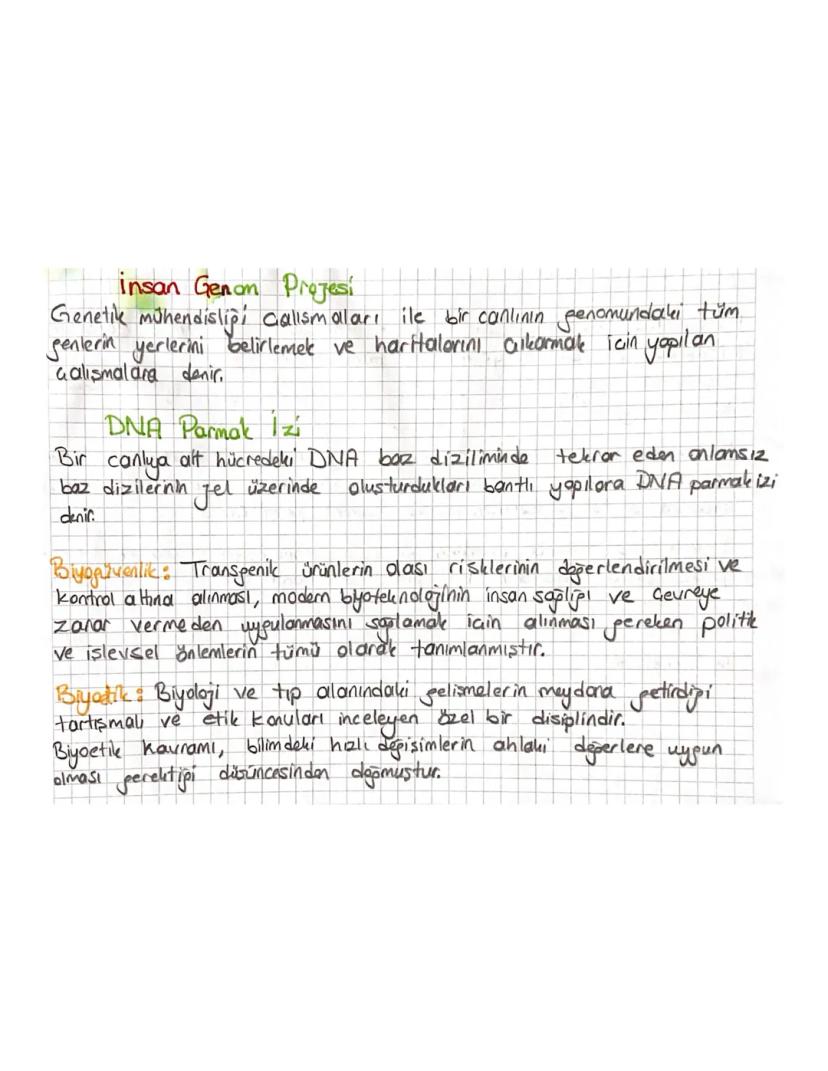 İnsan Genom Projesi
Genetik mühendisliği çalışmaları ile bir canlının genomundaki tüm
genlerin yerlerini belirlemek ve haritalarını çıkarmak için yapılan
çalışmalara denir.
DNA Parmak İzi
Bir canlıya ait hücredeki DNA baz diziliminde tekrar eden anlamsız
baz dizilerinin jel üzerinde oluşturdukları bantlı yapılara DNA parmak izi
denir.
Biyogüvenlik: Transgenik ürünlerin olası risklerinin değerlendirilmesi ve
kontrol altına alınması, modern biyoteknolojinin insan sağlığı ve çevreye
zarar vermeden uygulanmasını sağlamak için alınması gereken politik
ve işlevsel önlemlerin tümü olarak tanımlanmıştır.
Biyoetik: Biyoloji ve tıp alanındaki gelişmelerin meydana getirdiği
tartışmalı ve etik konuları inceleyen özel bir disiplindir.
Biyoetik kavramı, bilimdeki hızlı değişimlerin ahlaki değerlere uygun
olması gerektiği düşüncesinden doğmuştur.